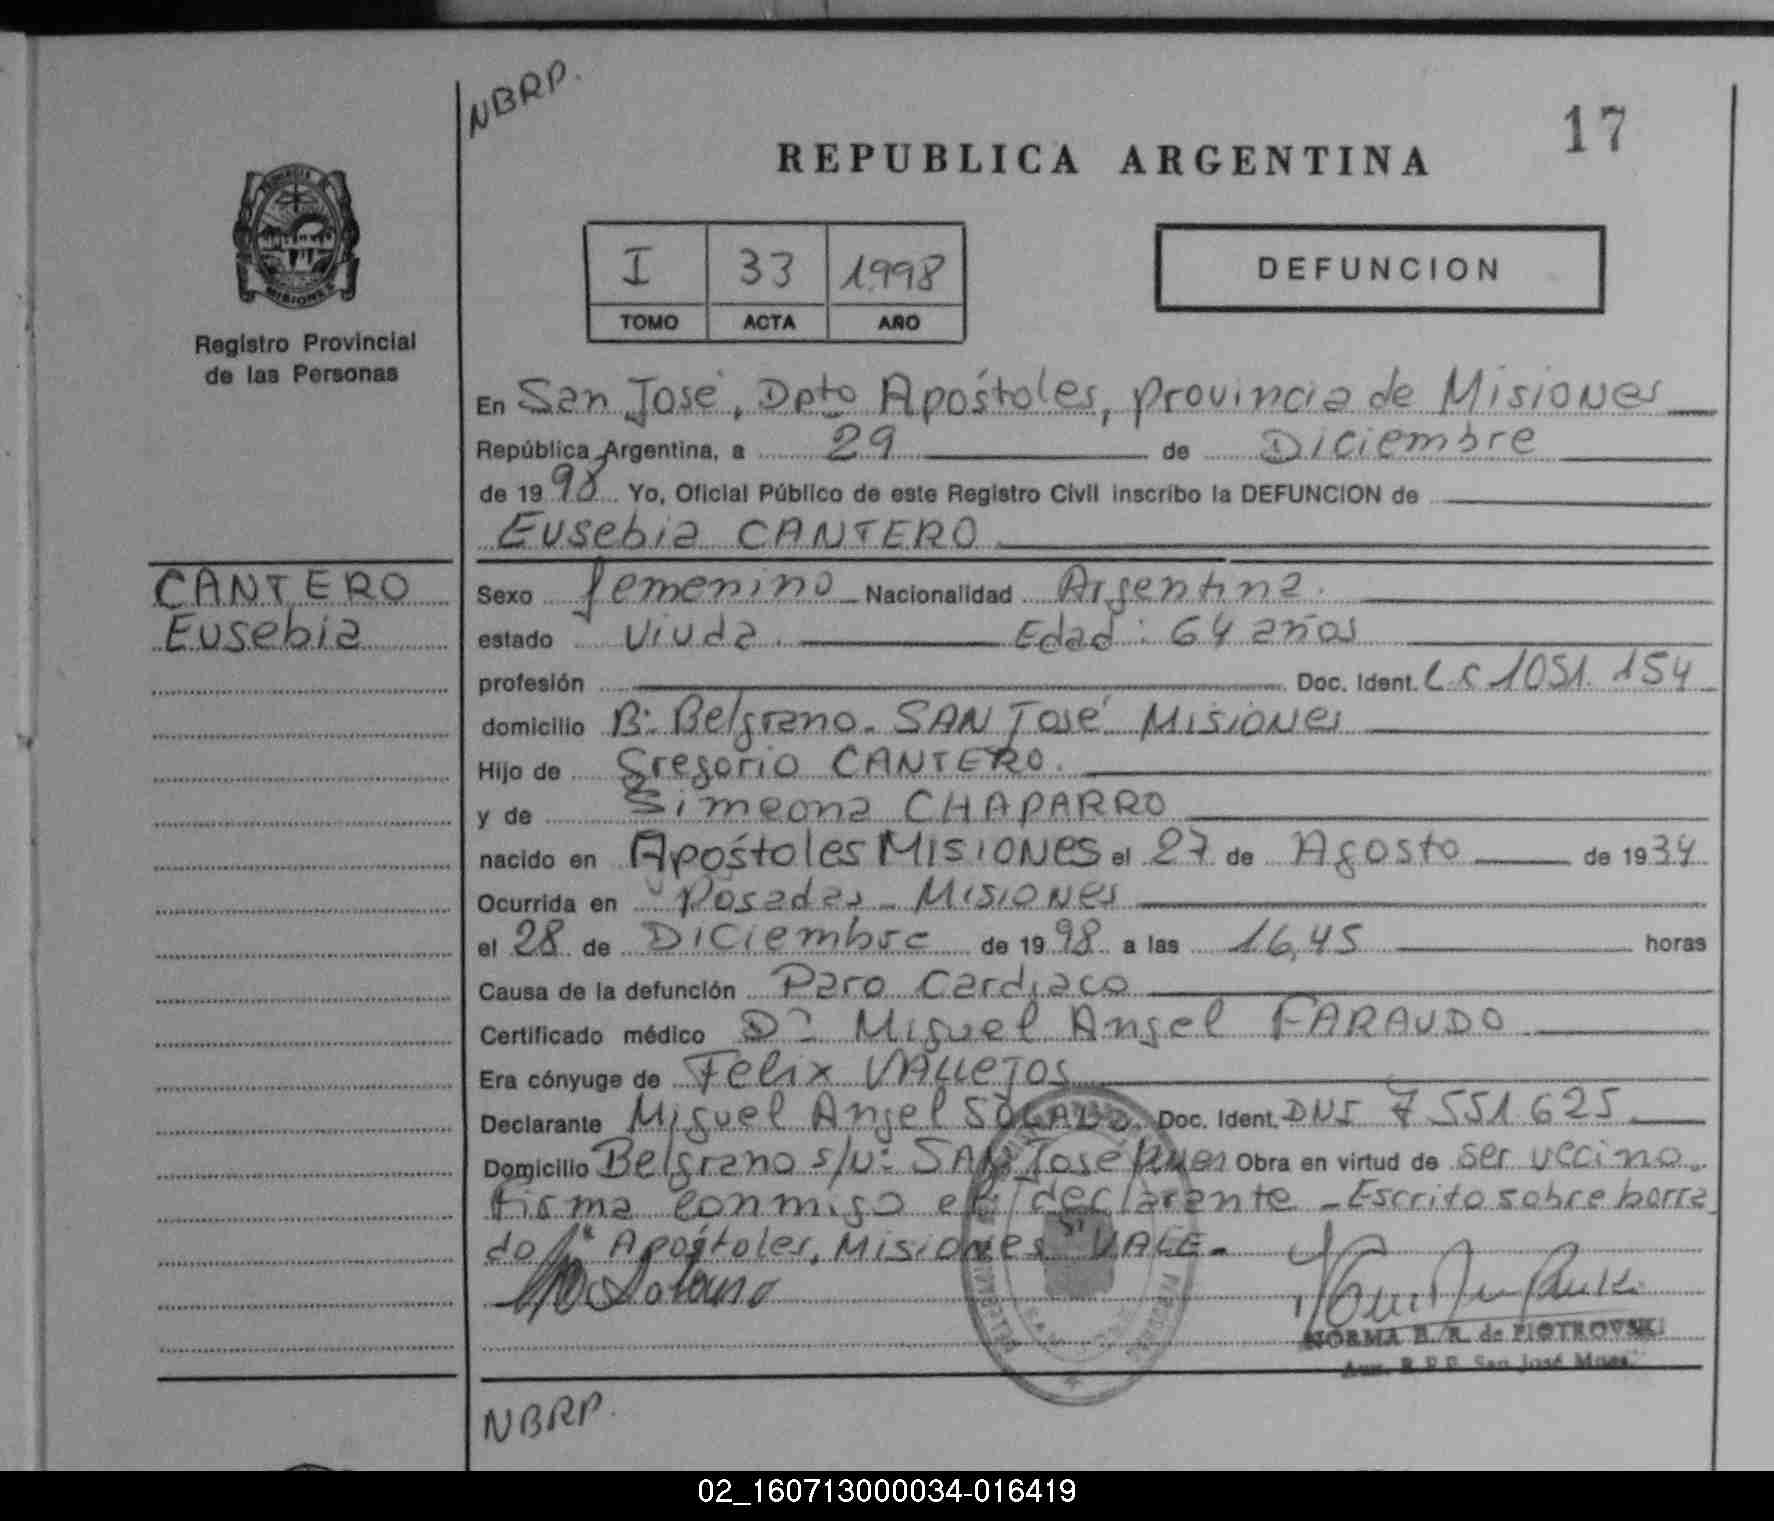 NBRP.
17
REPUBLICA ARGENTINA
PROVINCIA DE
MISIONES
Registro Provincial
de las Personas
I 33 1998
TOMO ACTA AÑO
DEFUNCION
En San José, Dpto Apóstoles, provincia de Misiones
República Argentina, a 29 de Diciembre
de 1998 Yo, Oficial Público de este Registro Civil inscribo la DEFUNCION de
Eusebia CANTERO
CANTERO
Eusebia
Sexo femenino Nacionalidad Argentina.
estado Viuda. Edad: 64 años
profesión Doc. Ident. LC 1051.154
domicilio Bº Belgrano. SAN José Misiones
Hijo de Gregorio CANTERO.
y de Simeona CHAPARRO
nacido en Apóstoles MISIONES el 27 de Agosto de 1934
Ocurrida en Posadas - MISIONES
el 28 de Diciembre de 1998 a las 16,45 horas
Causa de la defunción Paro Cardiaco
Certificado médico Dr Miguel Angel FARAUDO
Era cónyuge de Felix VALLEJOS
Declarante Miguel Angel SOLANO. Doc. Ident. DNI 7551.625
Domicilio Belgrano s/nº SAN José Mnes Obra en virtud de ser vecino.
Firma conmigo el declarante - Escrito sobre borra
do "Apóstoles, Misiones" VALE-
NORMA B. R. de PIOTROVSKI
Aux. R.P.P. San José Mnes.
NBRP.
02_160713000034-016419